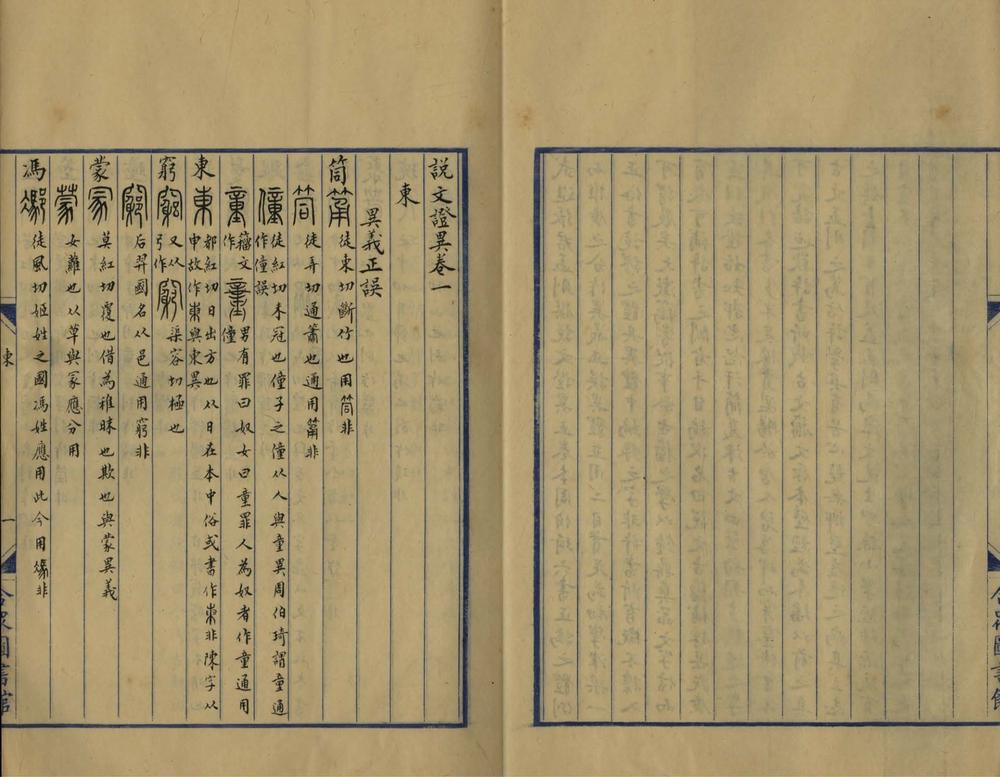 說文證異卷一
東
異義正誤
筒 筩 徒東切斷竹也用筒非
筒 徒弄切通簫也通用筩非
僮 徒紅切未冠也僮子之僮从人與童異周伯琦謂童通
作僮誤
童 籀文作 童 男有罪曰奴女曰童罪人為奴者作童通用
僮
東 東 都紅切日出方也从日在木中俗或書作柬非陳字从
申故作東與東異
窮 竆 又从弓作 窮 渠容切極也
竆 后羿國名从邑通用窮非
蒙 冡 莫紅切覆也借為稚昧也欺也與蒙異義
蒙 女蘿也从草與冡應分用
馮 徒風切姬姓之國馮姓應用此今用馮非
東
一
合眾圖書館
合眾圖書館